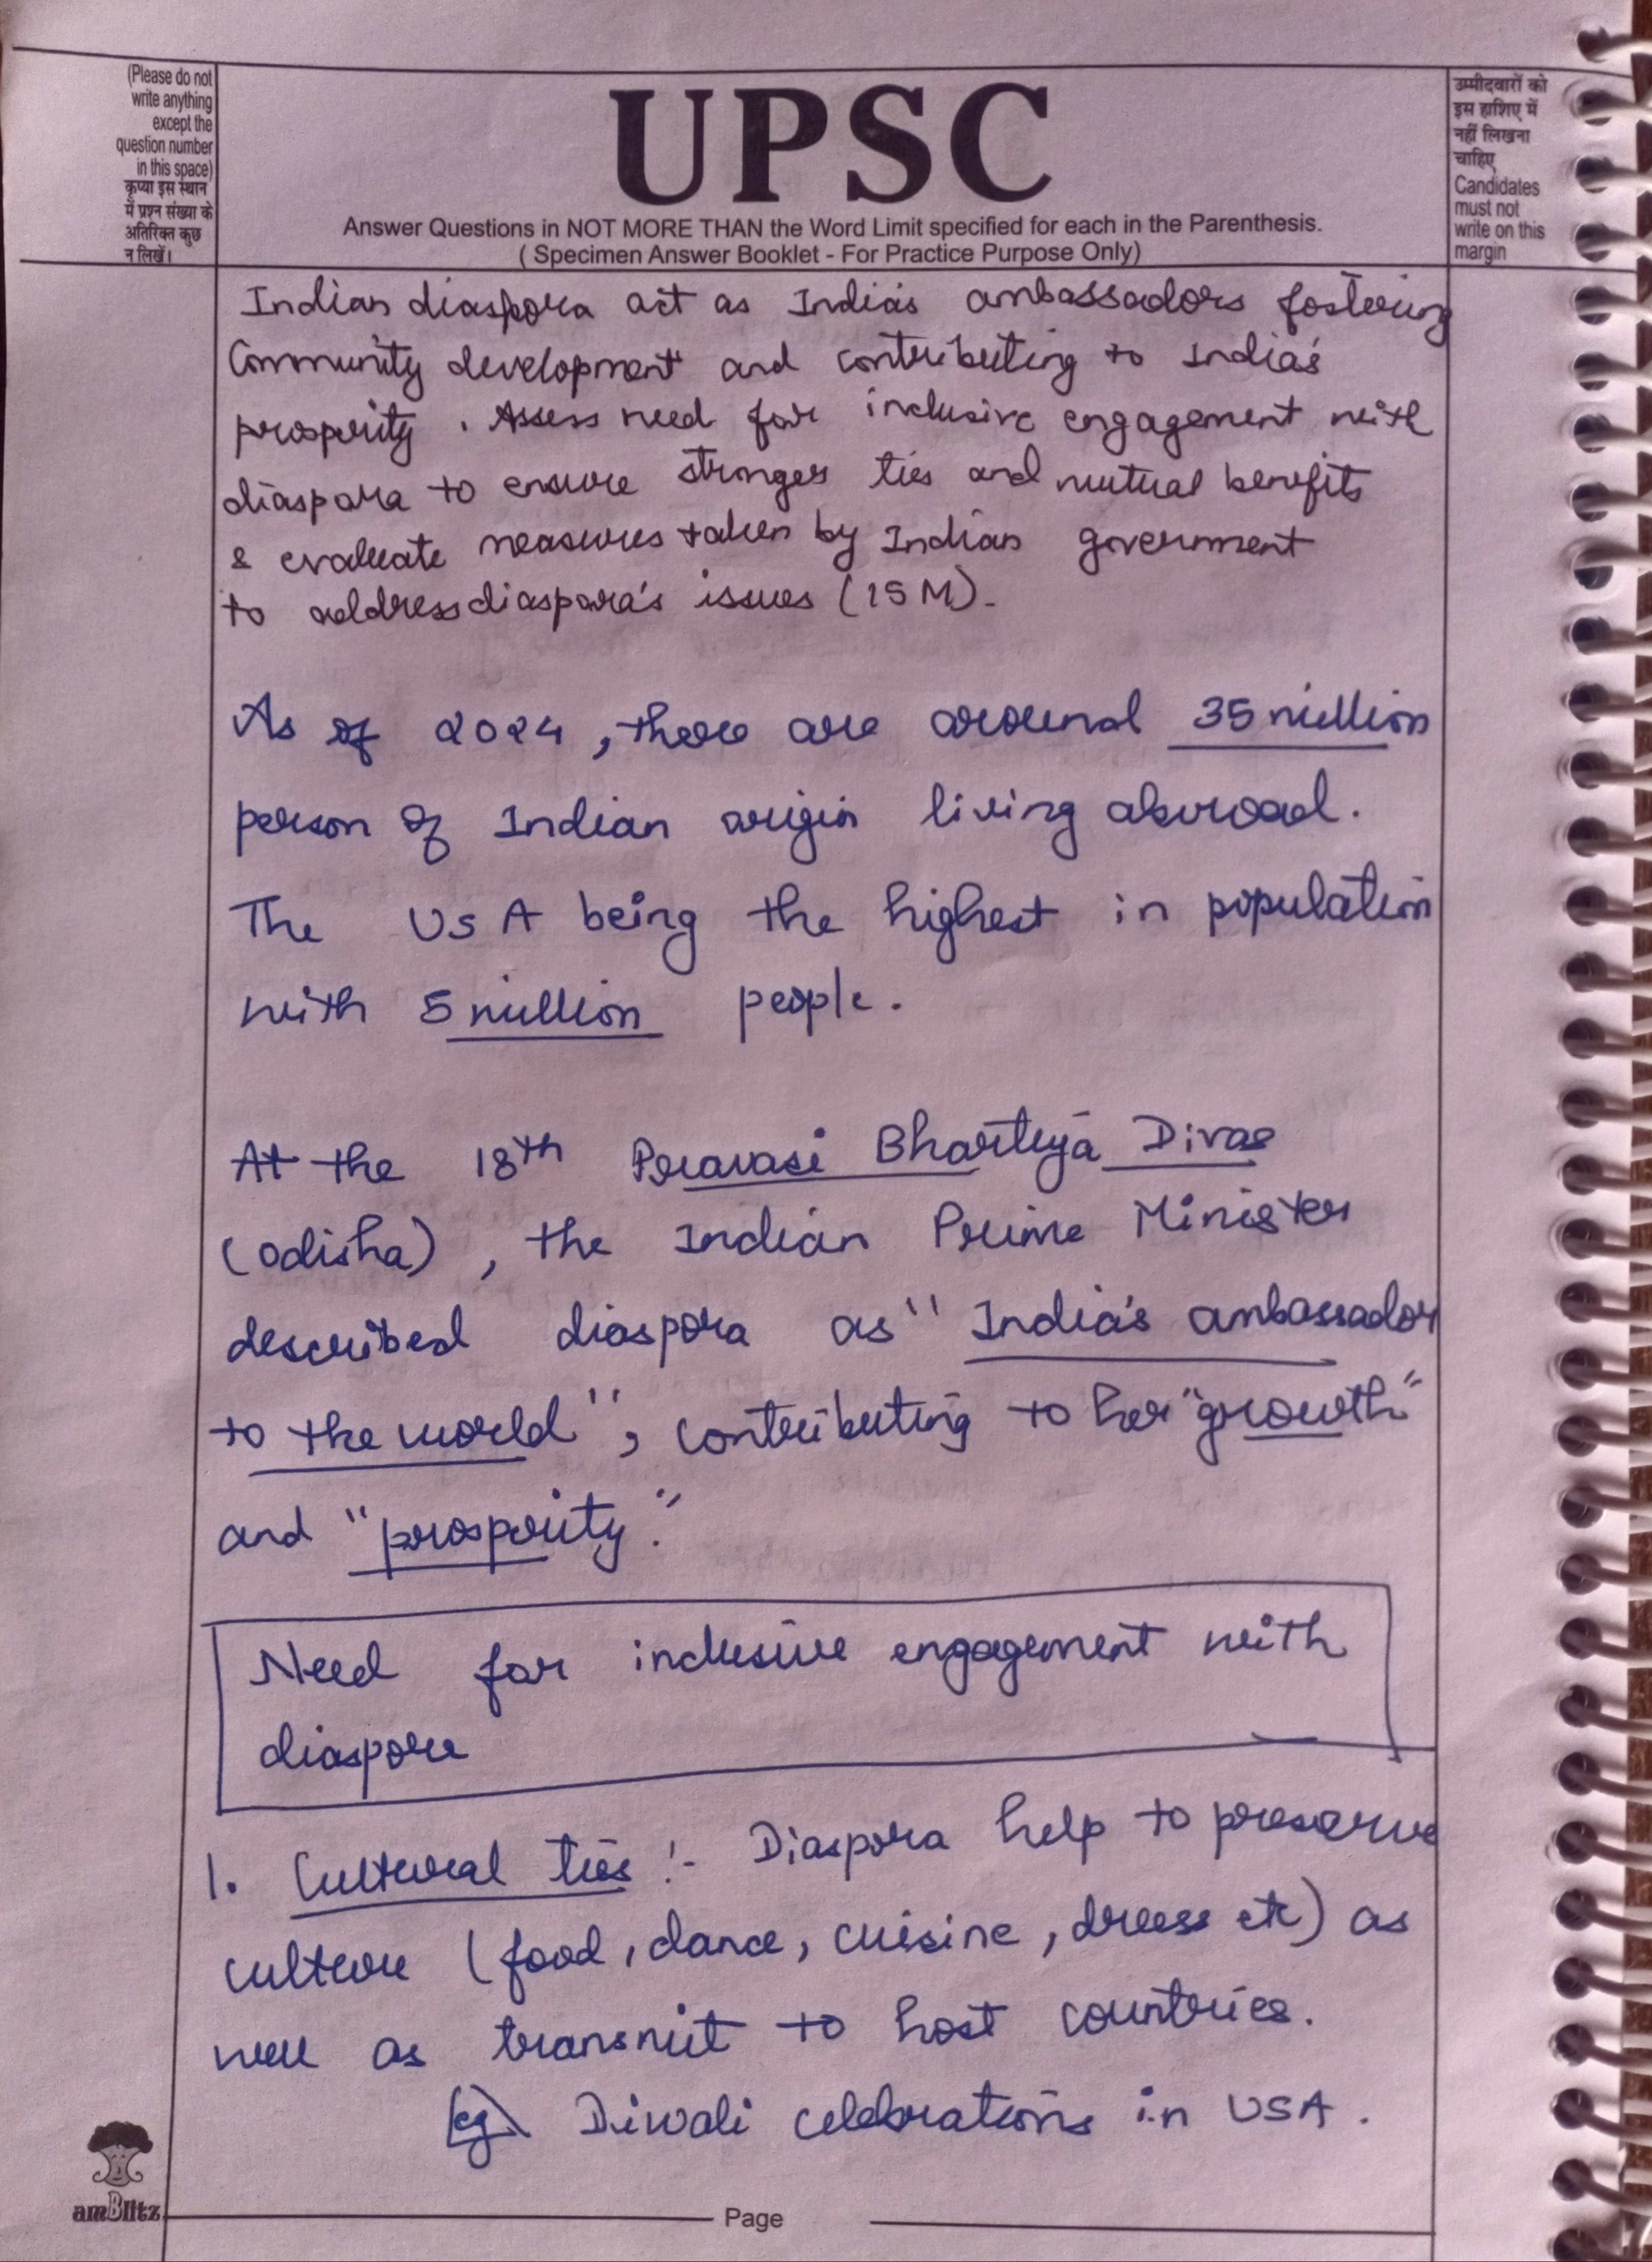 (Please do not
write anything
except the
question number
in this space)
कृप्या इस स्थान
में प्रश्न संख्या के
अतिरिक्त कुछ
न लिखें।
UPSC
Answer Questions in NOT MORE THAN the Word Limit specified for each in the Parenthesis.
( Specimen Answer Booklet - For Practice Purpose Only)
उम्मीदवारों को
इस हाशिए में
नहीं लिखना
चाहिए
Candidates
must not
write on this
margin
Indian diaspora act as India's ambassadors fostering
Community development and contributing to India's
prosperity. Assess need for inclusive engagement with
diaspora to ensure stronger ties and mutual benefits
& evaluate measures taken by Indian government
to address diaspora's issues (15 M).
As of 2024, there are around 35 million
person of Indian origin living abroad.
The USA being the highest in population
with 5 million people.
At the 18th Pravasi Bhartiya Divas
(odisha), the Indian Prime Minister
described diaspora as "India's ambassador
to the world", contributing to her "growth"
and "prosperity."
Need for inclusive engagement with
diaspora
1. Cultural ties :- Diaspora help to preserve
culture (food, dance, cuisine, dress etc) as
well as transmit to host countries.
eg Diwali celebrations in USA.
amBlitz
Page